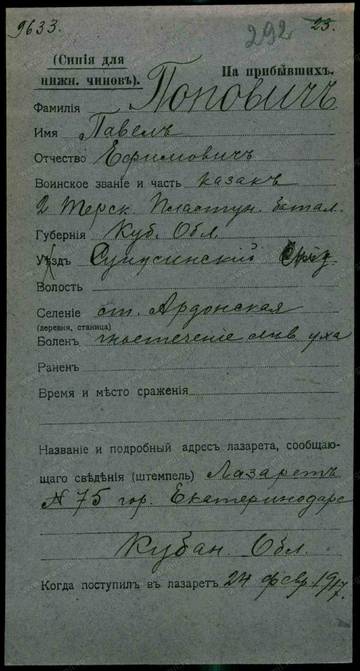 9633. 292 23.
(Синія для нижн. чиновъ).
На прибывшихъ.
Фамилія Поповичъ
Имя Павелъ
Отчество Ефимовичъ
Воинское званіе и часть казакъ
2 Терск. Пластун. батал.
Губернія Куб. Обл.
Уѣздъ Сунженскій
Волость
Селеніе ст. Ардонская
(деревня, станица)
Боленъ гноетеченіе лѣв уха
Раненъ
Время и мѣсто сраженія
Названіе и подробный адресъ лазарета, сообщаю-
щаго свѣдѣнія (штемпель) Лазаретъ
№ 75 гор. Екатеринодаръ
Кубан. Обл.
Когда поступилъ въ лазаретъ 24 февр 1917.